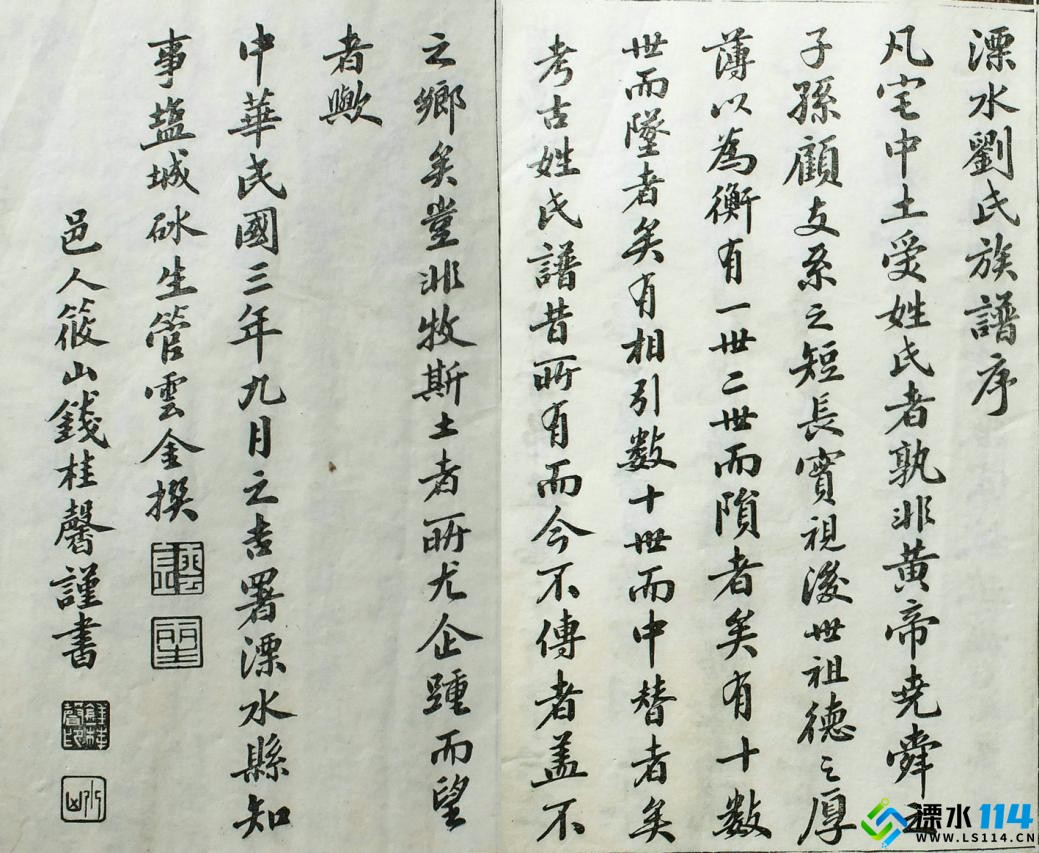 溧水劉氏族譜序
凡宅中土受姓氏者孰非黃帝堯舜之
子孫顧支系之短長實視後世祖德之厚
薄以為衡有一世二世而隕者矣有十數
世而墜者矣有相引數十世而中替者矣
考古姓氏譜昔所有而今不傳者盖不
之鄉矣豈非牧斯土者所尤企踵而望
者歟
中華民國三年九月之吉署溧水縣知
事鹽城砅生管雲金撰
邑人筱山錢桂馨謹書
溧水114
WWW.LS114.CN